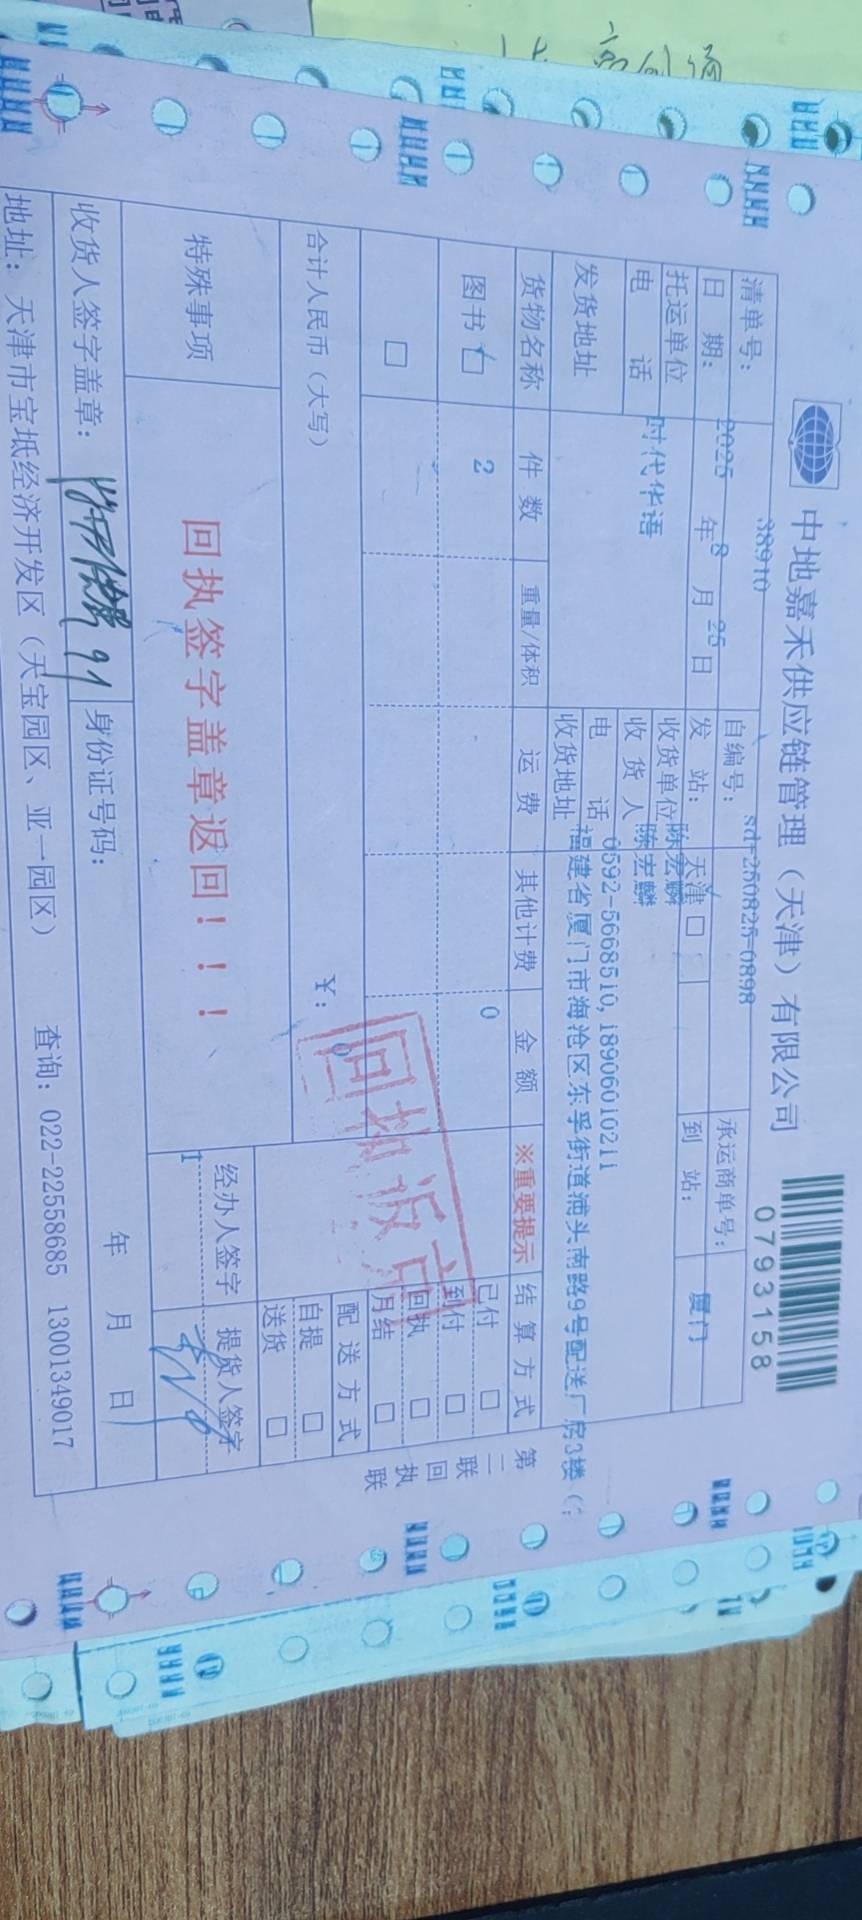 中地嘉禾供应链管理（天津）有限公司
0793158
清单号： 38910 自编号： sd-250825-0898 承运商单号：
日 期： 2025 年 8 月 25 日 发 站： 天津 到 站： 厦门
托运单位 时代华语 收货单位 陈宏麟
电 话 收 货 人 陈宏麟
发货地址 电 话 0592-5668510, 18906010211
收货地址 福建省厦门市海沧区东孚街道浦头南路9号配送厂房3楼（
货物名称 件 数 重量/体积 运 费 其他计费 金 额 ※重要提示 结 算 方 式
图书 2 0 已付 □
□ 到付 □
回执 □
月结 □
合计人民币（大写） ¥： 0
配 送 方 式
自提 □
送货 □
回执返回
特殊事项 回执签字盖章返回！！！ 经办人签字 提货人签字
收货人签字盖章： 9.1 身份证号码： 年 月 日
地址：天津市宝坻经济开发区（天宝园区、亚一园区） 查询：022-22558685 13001349017
第二联 回执联